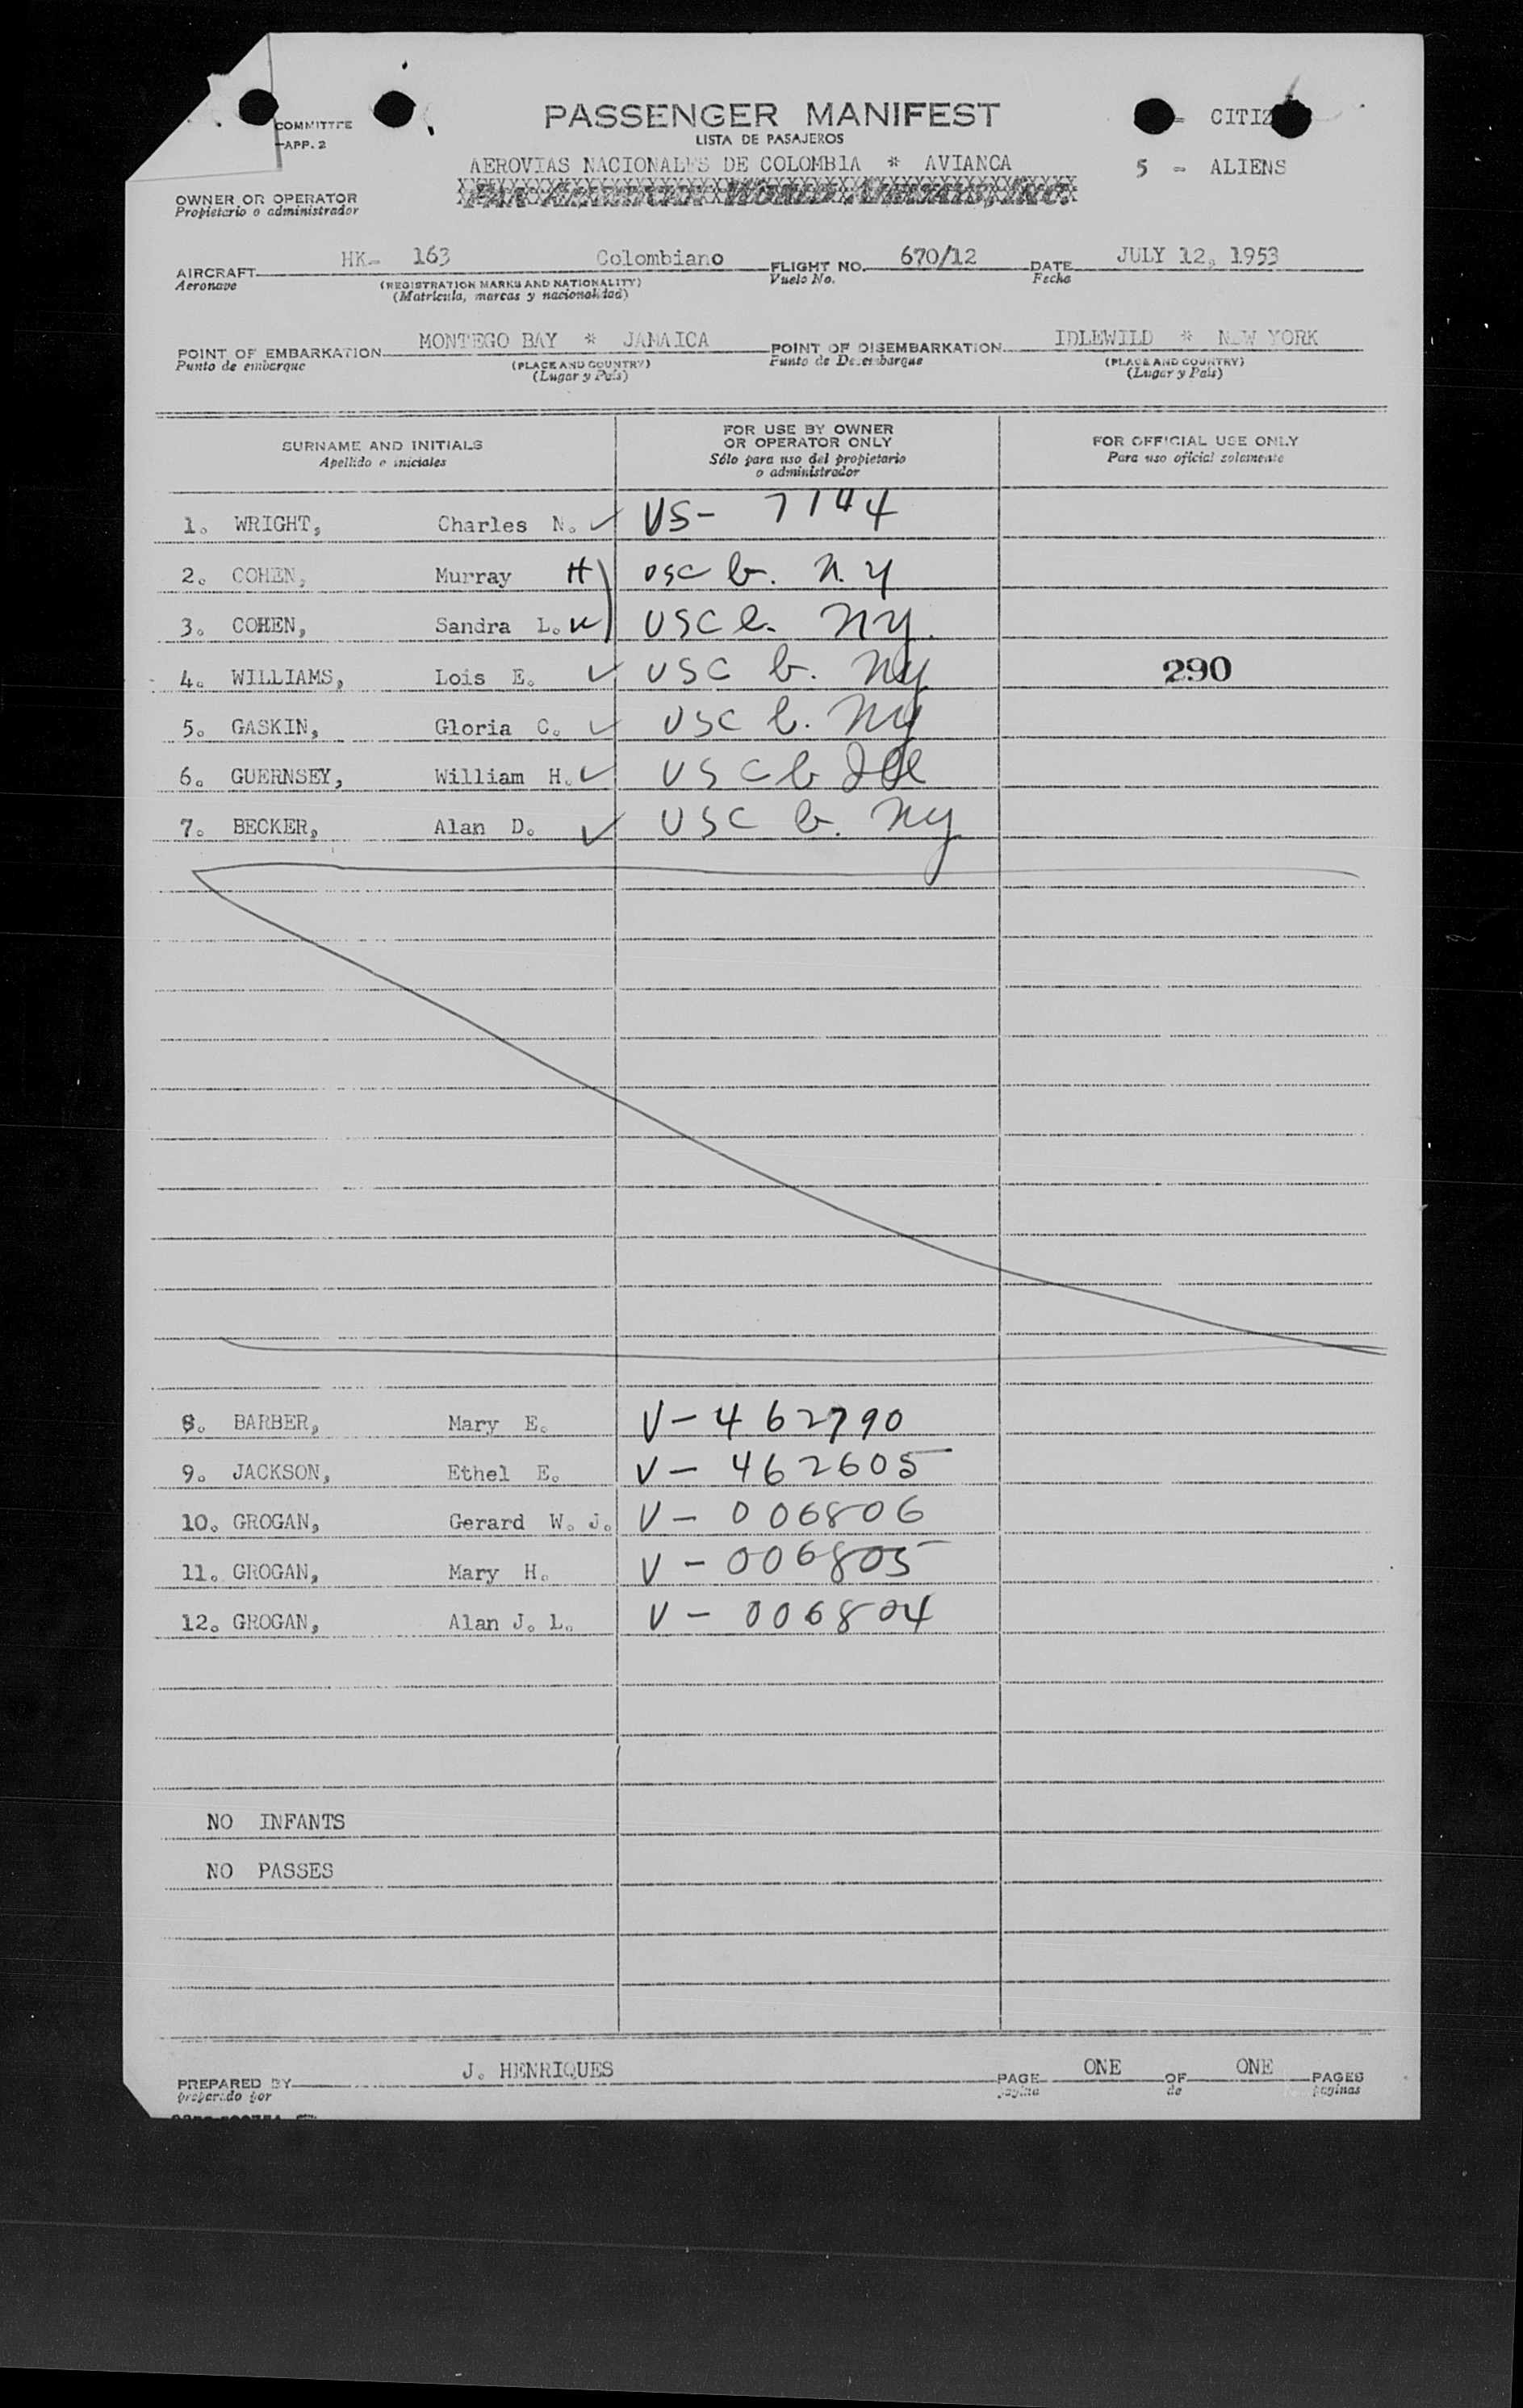 COMMITTEE
APP. 2
PASSENGER MANIFEST
LISTA DE PASAJEROS
AEROVIAS NACIONALES DE COLOMBIA * AVIANCA
PAN AMERICAN WORLD AIRWAYS, INC.
= CITIZ
5 = ALIENS
OWNER OR OPERATOR
Propietario o administrador
AIRCRAFT HK- 163 Colombiano FLIGHT NO. 670/12 DATE JULY 12, 1953
Aeronave (REGISTRATION MARKS AND NATIONALITY) Vuelo No. Fecha
(Matrícula, marcas y nacionalidad)
POINT OF EMBARKATION MONTEGO BAY * JAMAICA POINT OF DISEMBARKATION IDLEWILD * NEW YORK
Punto de embarque (PLACE AND COUNTRY) Punto de Desembarque (PLACE AND COUNTRY)
(Lugar y País) (Lugar y País)
SURNAME AND INITIALS FOR USE BY OWNER OR OPERATOR ONLY FOR OFFICIAL USE ONLY
Apellido e iniciales Sólo para uso del propietario o administrador Para uso oficial solamente
1. WRIGHT, Charles N. ✓ VS- 7144
2. COHEN, Murray H USC b. N.Y
3. COHEN, Sandra L. USC b. NY.
4. WILLIAMS, Lois E. ✓ USC b. NY 290
5. GASKIN, Gloria C. ✓ USC b. NY
6. GUERNSEY, William H. ✓ USC b Ill
7. BECKER, Alan D. ✓ USC b. NY
8. BARBER, Mary E. V-462790
9. JACKSON, Ethel E. V-462605
10. GROGAN, Gerard W. J. V-006806
11. GROGAN, Mary H. V-006805
12. GROGAN, Alan J. L. V-006804
NO INFANTS
NO PASSES
PREPARED BY J. HENRIQUES PAGE ONE OF ONE PAGES
preparado por página de páginas